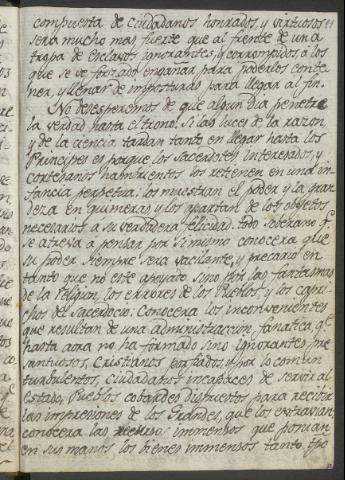 compuesta de ciudadanos honrados, y virtuosos 11
sera mucho mas fuerte que al frente de una
tropa de Esclavos ignorantes, y corrompidos, a los
que se ve forzado engañar para poderlos conte
ner, y llenar de imposturas para llegar al fin.
No desesperemos de que algun dia penetre
la verdad hasta el trono. Si las luces de la razon
y de la ciencia tardan tanto en llegar hasta los
Principes es porque los Sacerdotes interesados, y
cortesanos habrientos, los retienen en una in
fancia perpetua: los muestran el poder y la gran
deza en quimeras, y los apartan de los objetos
necesarios a su verdadera felicidad. todo soberano q.e
se atreva a pensar por si mismo conocera que
su poder siempre sera vacilante, y precario en
tanto que no este apoyado sino por las fantasmas
de la Religion, los errores de los Pueblos, y los capri
chos del Sacerdocio: Conocera los inconvenientes
que resultan de una administracion fanatica q.e
hasta aora no ha formado sino ignorantes pre
santuosos, Cristianos porfiados, y por lo comun
turbulentos, ciudadanos incapaces de servir al
estado, Pueblos cobardes dispuestos para recivir
las impresiones de los Grandes, que los extravian
conocera las inmensos que ponian
en sus manos los bienes inmensos tanto tpo